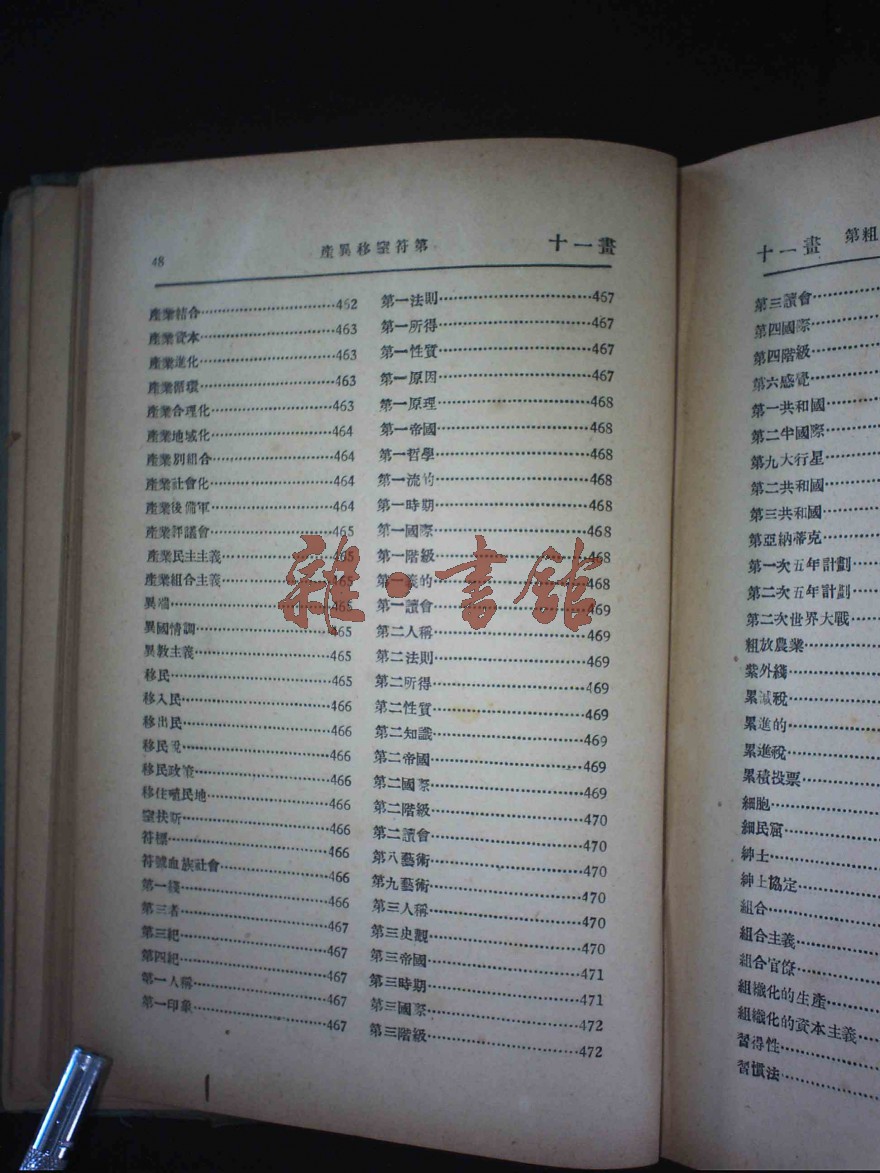 48
產異移窒符第
十一畫
產業結合…462
產業資本…463
產業進化…463
產業循環…463
產業合理化…463
產業地域化…464
產業別組合…464
產業社會化…464
產業後備軍…464
產業評議會…465
產業民主主義…465
產業組合主義…465
異端…465
異國情調…465
異教主義…465
移民…465
移入民…466
移出民…466
移民稅…466
移民政策…466
移住殖民地…466
窒扶斯…466
符標…466
符號血族社會…466
第一綫…466
第三者…467
第三紀…467
第四紀…467
第一人稱…467
第一印象…467
第一法則…467
第一所得…467
第一性質…467
第一原因…467
第一原理…468
第一帝國…468
第一哲學…468
第一流的…468
第一時期…468
第一國際…468
第一階級…468
第一義的…468
第一讀會…469
第二人稱…469
第二法則…469
第二所得…469
第二性質…469
第二知識…469
第二帝國…469
第二國際…469
第二階級…470
第二讀會…470
第八藝術…470
第九藝術…470
第三人稱…470
第三史觀…470
第三帝國…471
第三時期…471
第三國際…472
第三階級…472
十一畫
第粗
第三讀會…
第四國際…
第四階級…
第六感覺…
第一共和國…
第二半國際…
第九大行星…
第二共和國…
第三共和國…
第亞納蒂克…
第一次五年計劃…
第二次五年計劃…
第二次世界大戰…
粗放農業…
紫外綫…
累減稅…
累進的…
累進稅…
累積投票…
細胞…
細民窟…
紳士…
紳士協定…
組合…
組合主義…
組合官僚…
組織化的生產…
組織化的資本主義…
習得性…
習慣法…
雜·書館